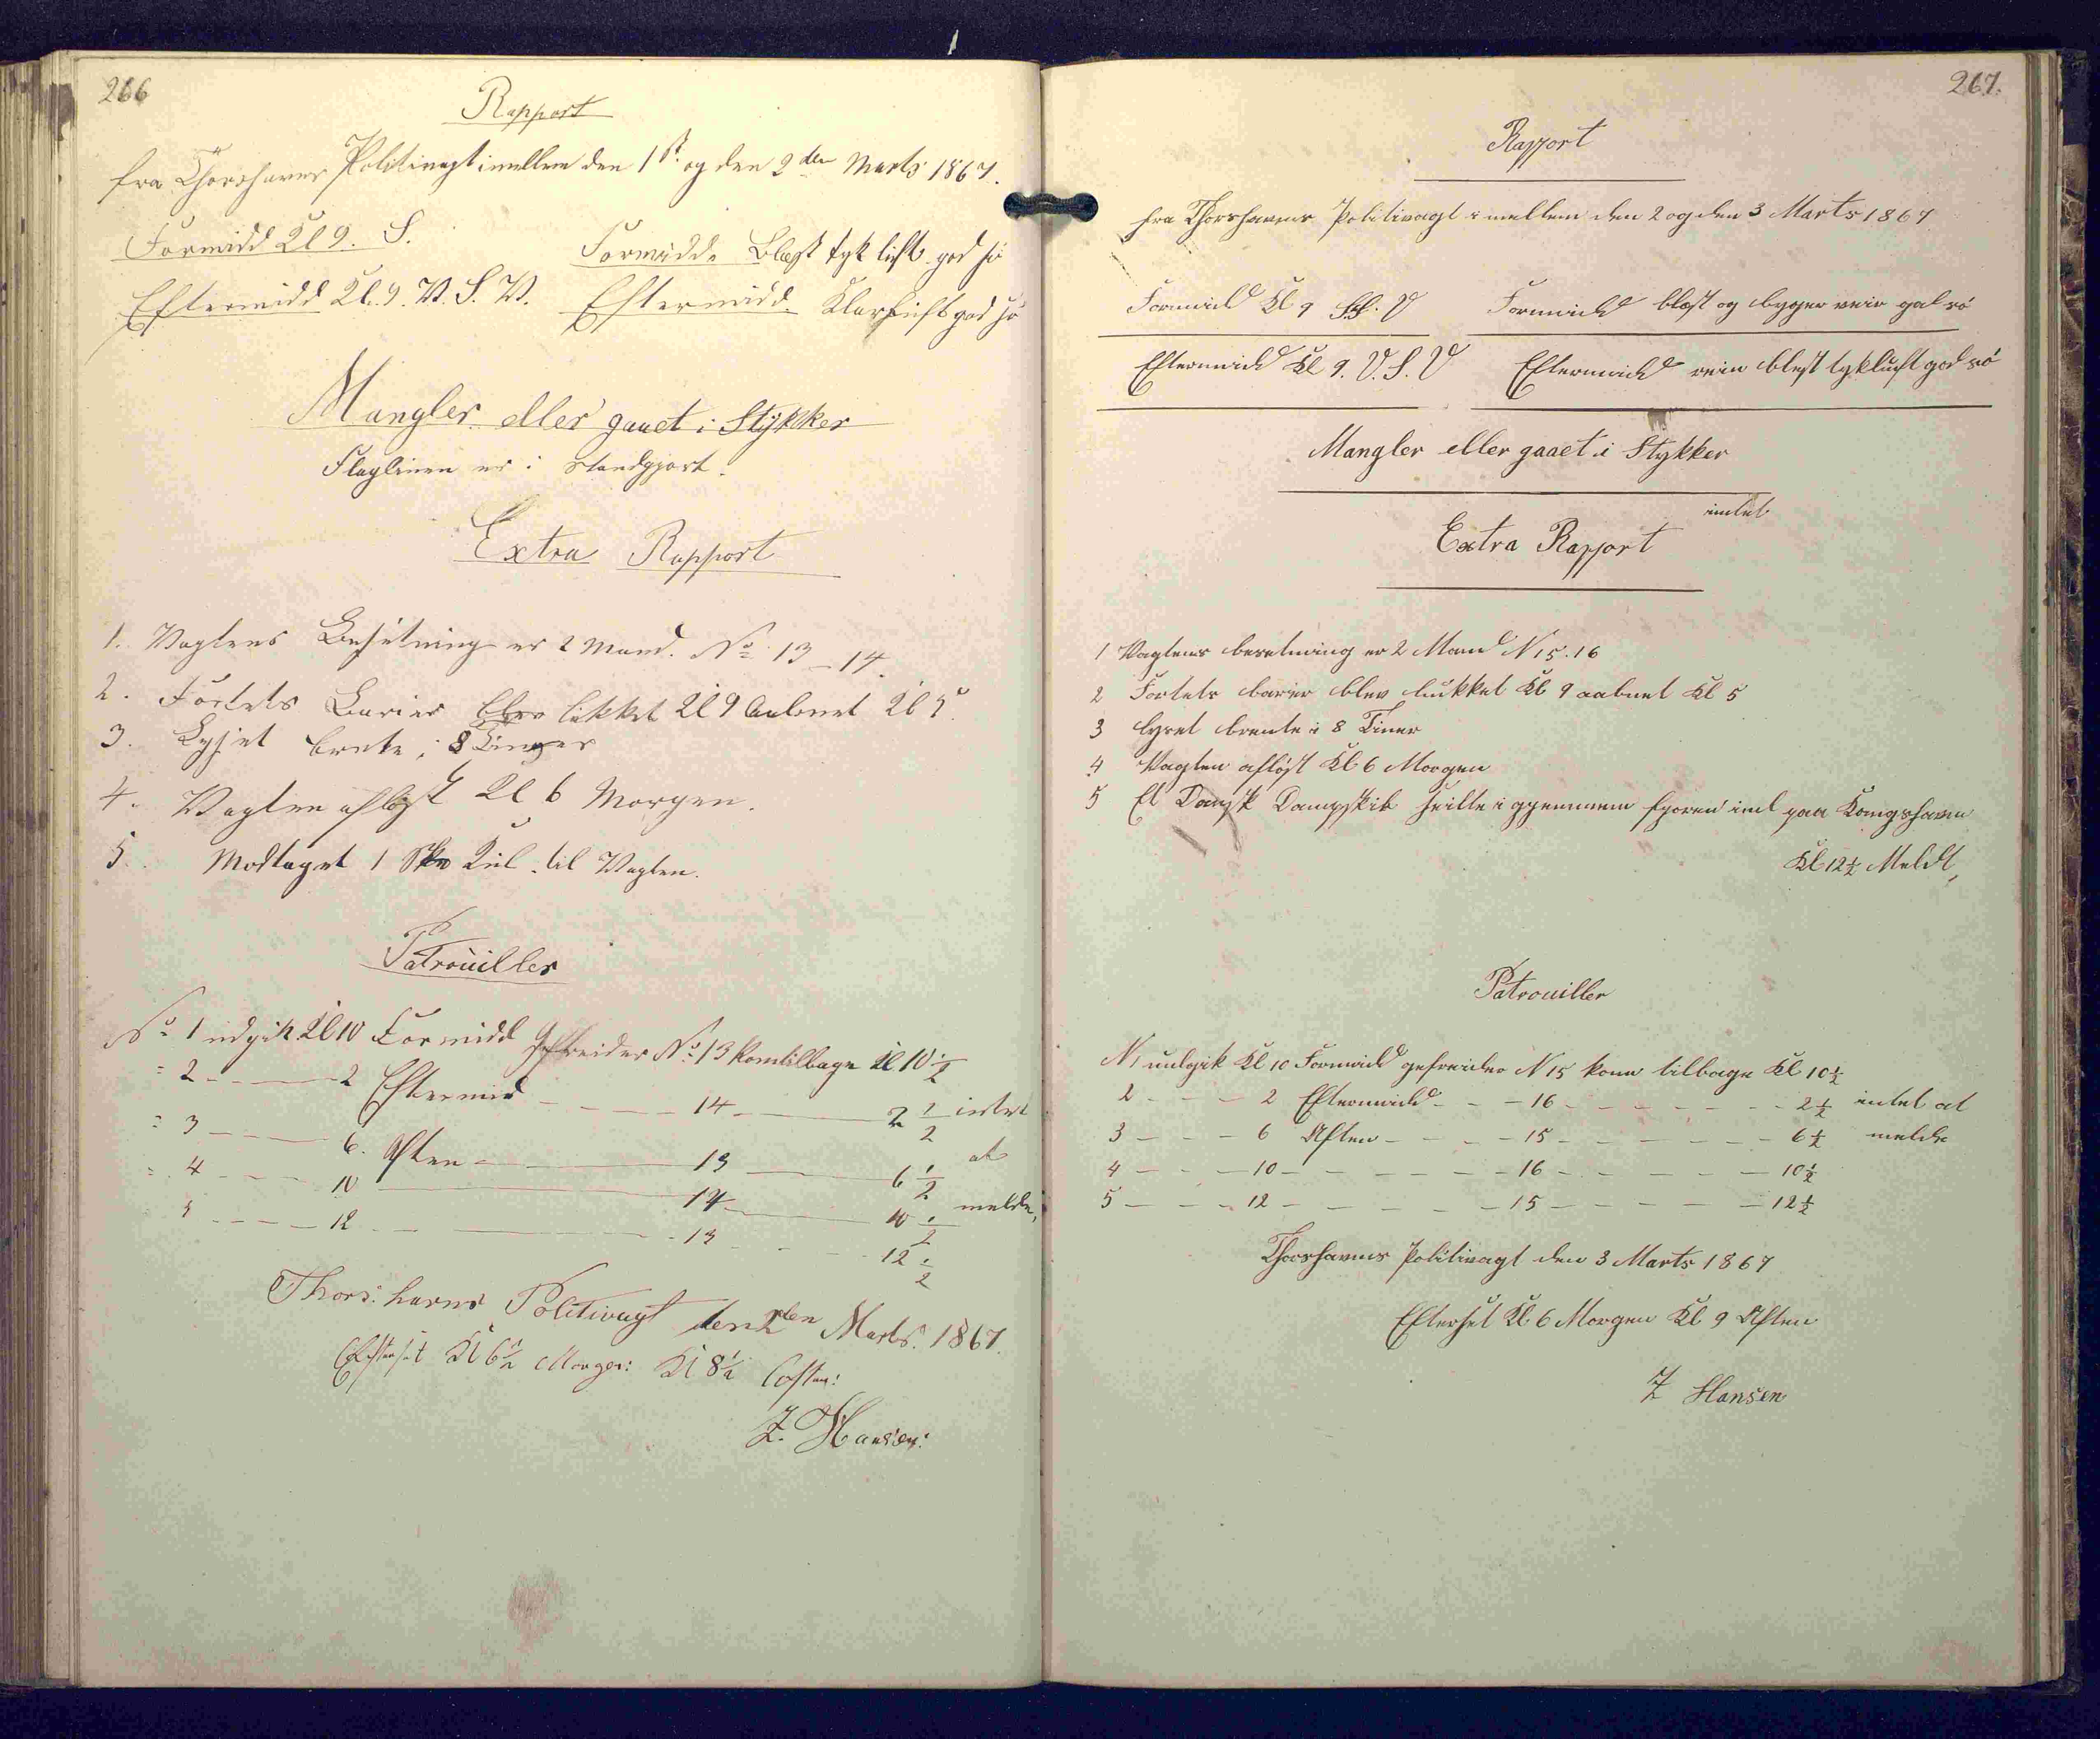 266
Rapport
fra Thorshavns Politivagt imellem den 1st. og den 2den Marts 1867.
Formidd Kl 9. S. Formidd. Blæst tyk luft god sö
Eftermidd Kl. 9. V. S. V. Eftermidd Klar luft god sö
Mangler eller gaaet i Stÿkker
Flaglinen er i Standgjort.
Extra Rapport
1. Vagtens Besetning er 2 Mand. No 13 - 14.
2. Fortets Barier blev lukket Kl 9 Aabnet Kl 5.
3. Lyset brente i 8 Timer
4. Vagten aflöst Kl 6 Morgen.
5. Modtaget 1 Kul til Vagten.
Patrouiller
No 1 udgik Kl 10 Formidd Gefreider No 13 kom tilbage Kl 10 1/2
= 2 - - - 2 Eftermid - - - 14 - - - 2 1/2 intet
= 3 - - - 6. Aften - - - 13 - - - 6 1/2 at
= 4 - - - 10 - - - 14 - - - 10 1/2 melde,
5 - - - 12 - - - 13 - - - 12 1/2
Thors: havns Politivagt den 2den Marts. 1867.
Efterset Kl 6 1/2 Morgen: Kl 8 1/2 Aften:
Z. Hansen:
267.
Rapport
fra Thorshavns Politivagt i mellem den 2 og den 3 Marts 1867
Formidd Kl 9 V Formidd blæst og byger veir gal sö
Eftermidd Kl 9. V. S. V Eftermidd vein blest tykluft god sö
Mangler eller gaaet i Stykker
intet
Extra Rapport
1 Vagtens besetning er 2 Mand N 15. 16
2 Fortets barier blev lukket Kl 9 aabnet Kl 5
3 lyset brente i 8 Timer
4 Vagten aflöst Kl 6 Morgen
5 Et Dansk Dampskib seilte i gjennem fjoren ind paa Kongshavn
Kl 12 1/2 Meldt,
Patrouiller
N 1 uudgik Kl 10 Formidd gefreider N 15 kom tilbage Kl 10 1/2
2 - - - 2 Eftermidd - - - 16 - - - 2 1/2 intet at
3 - - - 6 Aften - - - 15 - - - 6 1/2 melde
4 - - - 10 - - - 16 - - - 10 1/2
5 - - - 12 - - - 15 - - - 12 1/2
Thorshavns Politivagt den 3 Marts 1867
Efterset Kl 6 Morgen Kl 9 Aften
Z Hansen